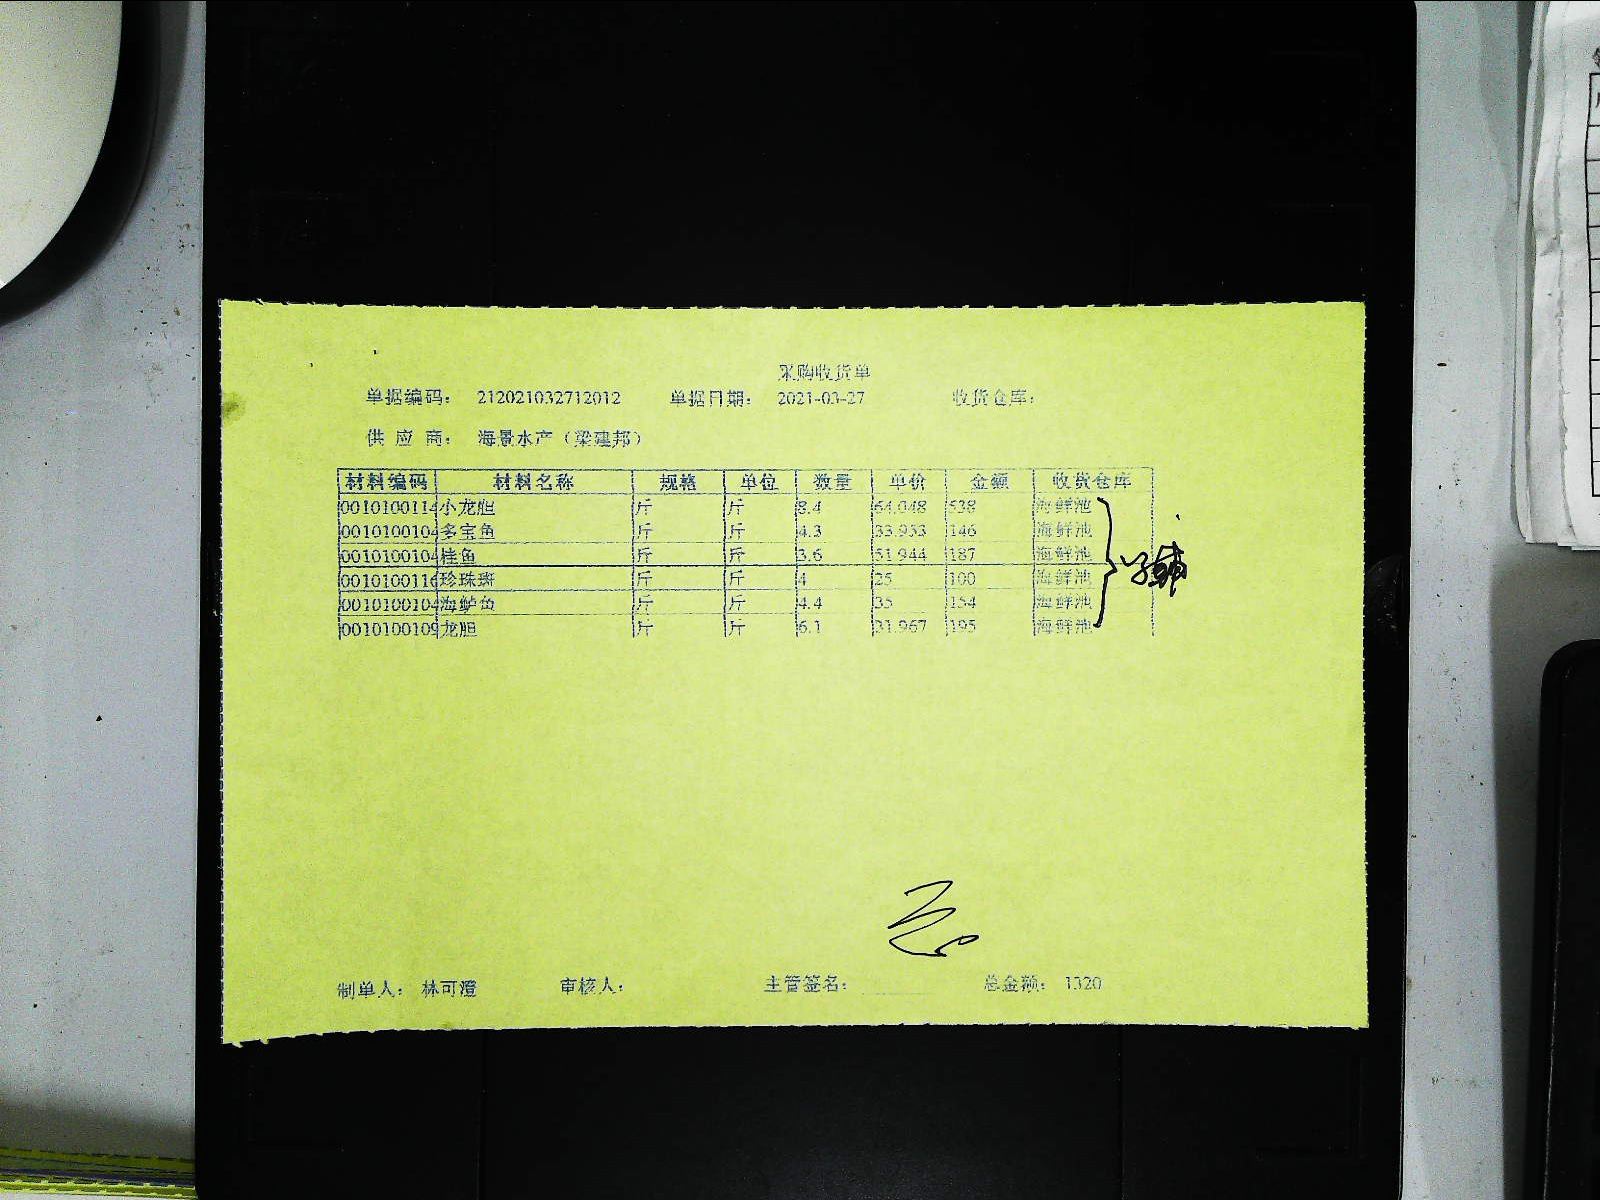 采购收货单
单据编码： 212021032712012 单据日期： 2021-03-27 收货仓库：
供 应 商： 海景水产（梁建邦）
材料编码 材料名称 规格 单位 数量 单价 金额 收货仓库
0010100114 小龙胆 斤 斤 8.4 64.048 538 海鲜池
0010100104 多宝鱼 斤 斤 4.3 33.953 146 海鲜池
0010100104 桂鱼 斤 斤 3.6 51.944 187 海鲜池
0010100116 珍珠斑 斤 斤 4 25 100 海鲜池
0010100104 海鲈鱼 斤 斤 4.4 35 154 海鲜池
0010100109 龙胆 斤 斤 6.1 31.967 195 海鲜池
制单人： 林可澄 审核人： 主管签名： 总金额： 1320